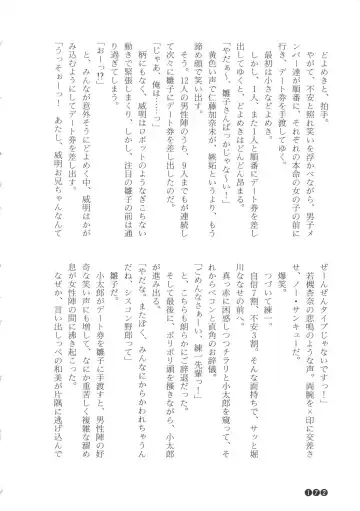 どよめきと、拍手。
やがて、不安と照れ笑いを浮かべながら、男子メ
ンバー達が順番に、それぞれの本命の女の子の前に
行き、デート券を手渡してゆく。
最初は小さなどよめき。
しかし、1人、また1人と順番にデート券を差し
出してゆくと、どよめきはどんどん昂まる。
「やだぁ〜、雛子さんばっかじゃなぁ〜い！」
黄色い声で仁藤加奈未が、嫉妬というより、もう
諦め顔で笑い出す。
そう。12人の男性陣のうち、9人までもが連続し
て次々に雛子にデート券を差し出したのだ。
「じゃあ、俺は……っ」
柄にもなく、威明はロボットのようなぎこちない
動きで緊張しまくり、しかし、注目の雛子の前は通
り過ぎてしまう。
「おーっ⁉」
と、みんなが意外そうにどよめく中、威明が
み込むようにしてデート券を差し出す。
「うっそぉーっ！　あたし、威明お兄ちゃんなんて
ぜーんぜんタイプじゃないですっ！」
若槻杏奈の悲鳴のような声。両腕を×印に交差さ
せ、ノー・サンキューだ。
爆笑。
つづいて練一。
自信7割、不安3割。そんな面持ちで、サッと堀
川ななせの前へ。
真っ赤に困惑しつつチラリと小太郎を窺って、そ
れからペコンと直角のお辞儀。
「ごめんなさぁーい、練一先輩っ！」
と、こちらも朗らかにご辞退だった。
そして最後に、ボリボリ頭を掻きながら、小太郎
が進み出る。
「やだな。またぼく、みんなにからかわれちゃうん
だね、シスコン野郎って」
雛子だ。
小太郎がデート券を雛子に手渡すと、男性陣の好
奇な笑い声にも増して、なにか重苦しく複雑な溜め
息が女性陣の間に沸き起こった。
なぜか、言い出しっぺの和美が片隅に逃げ込んで
172